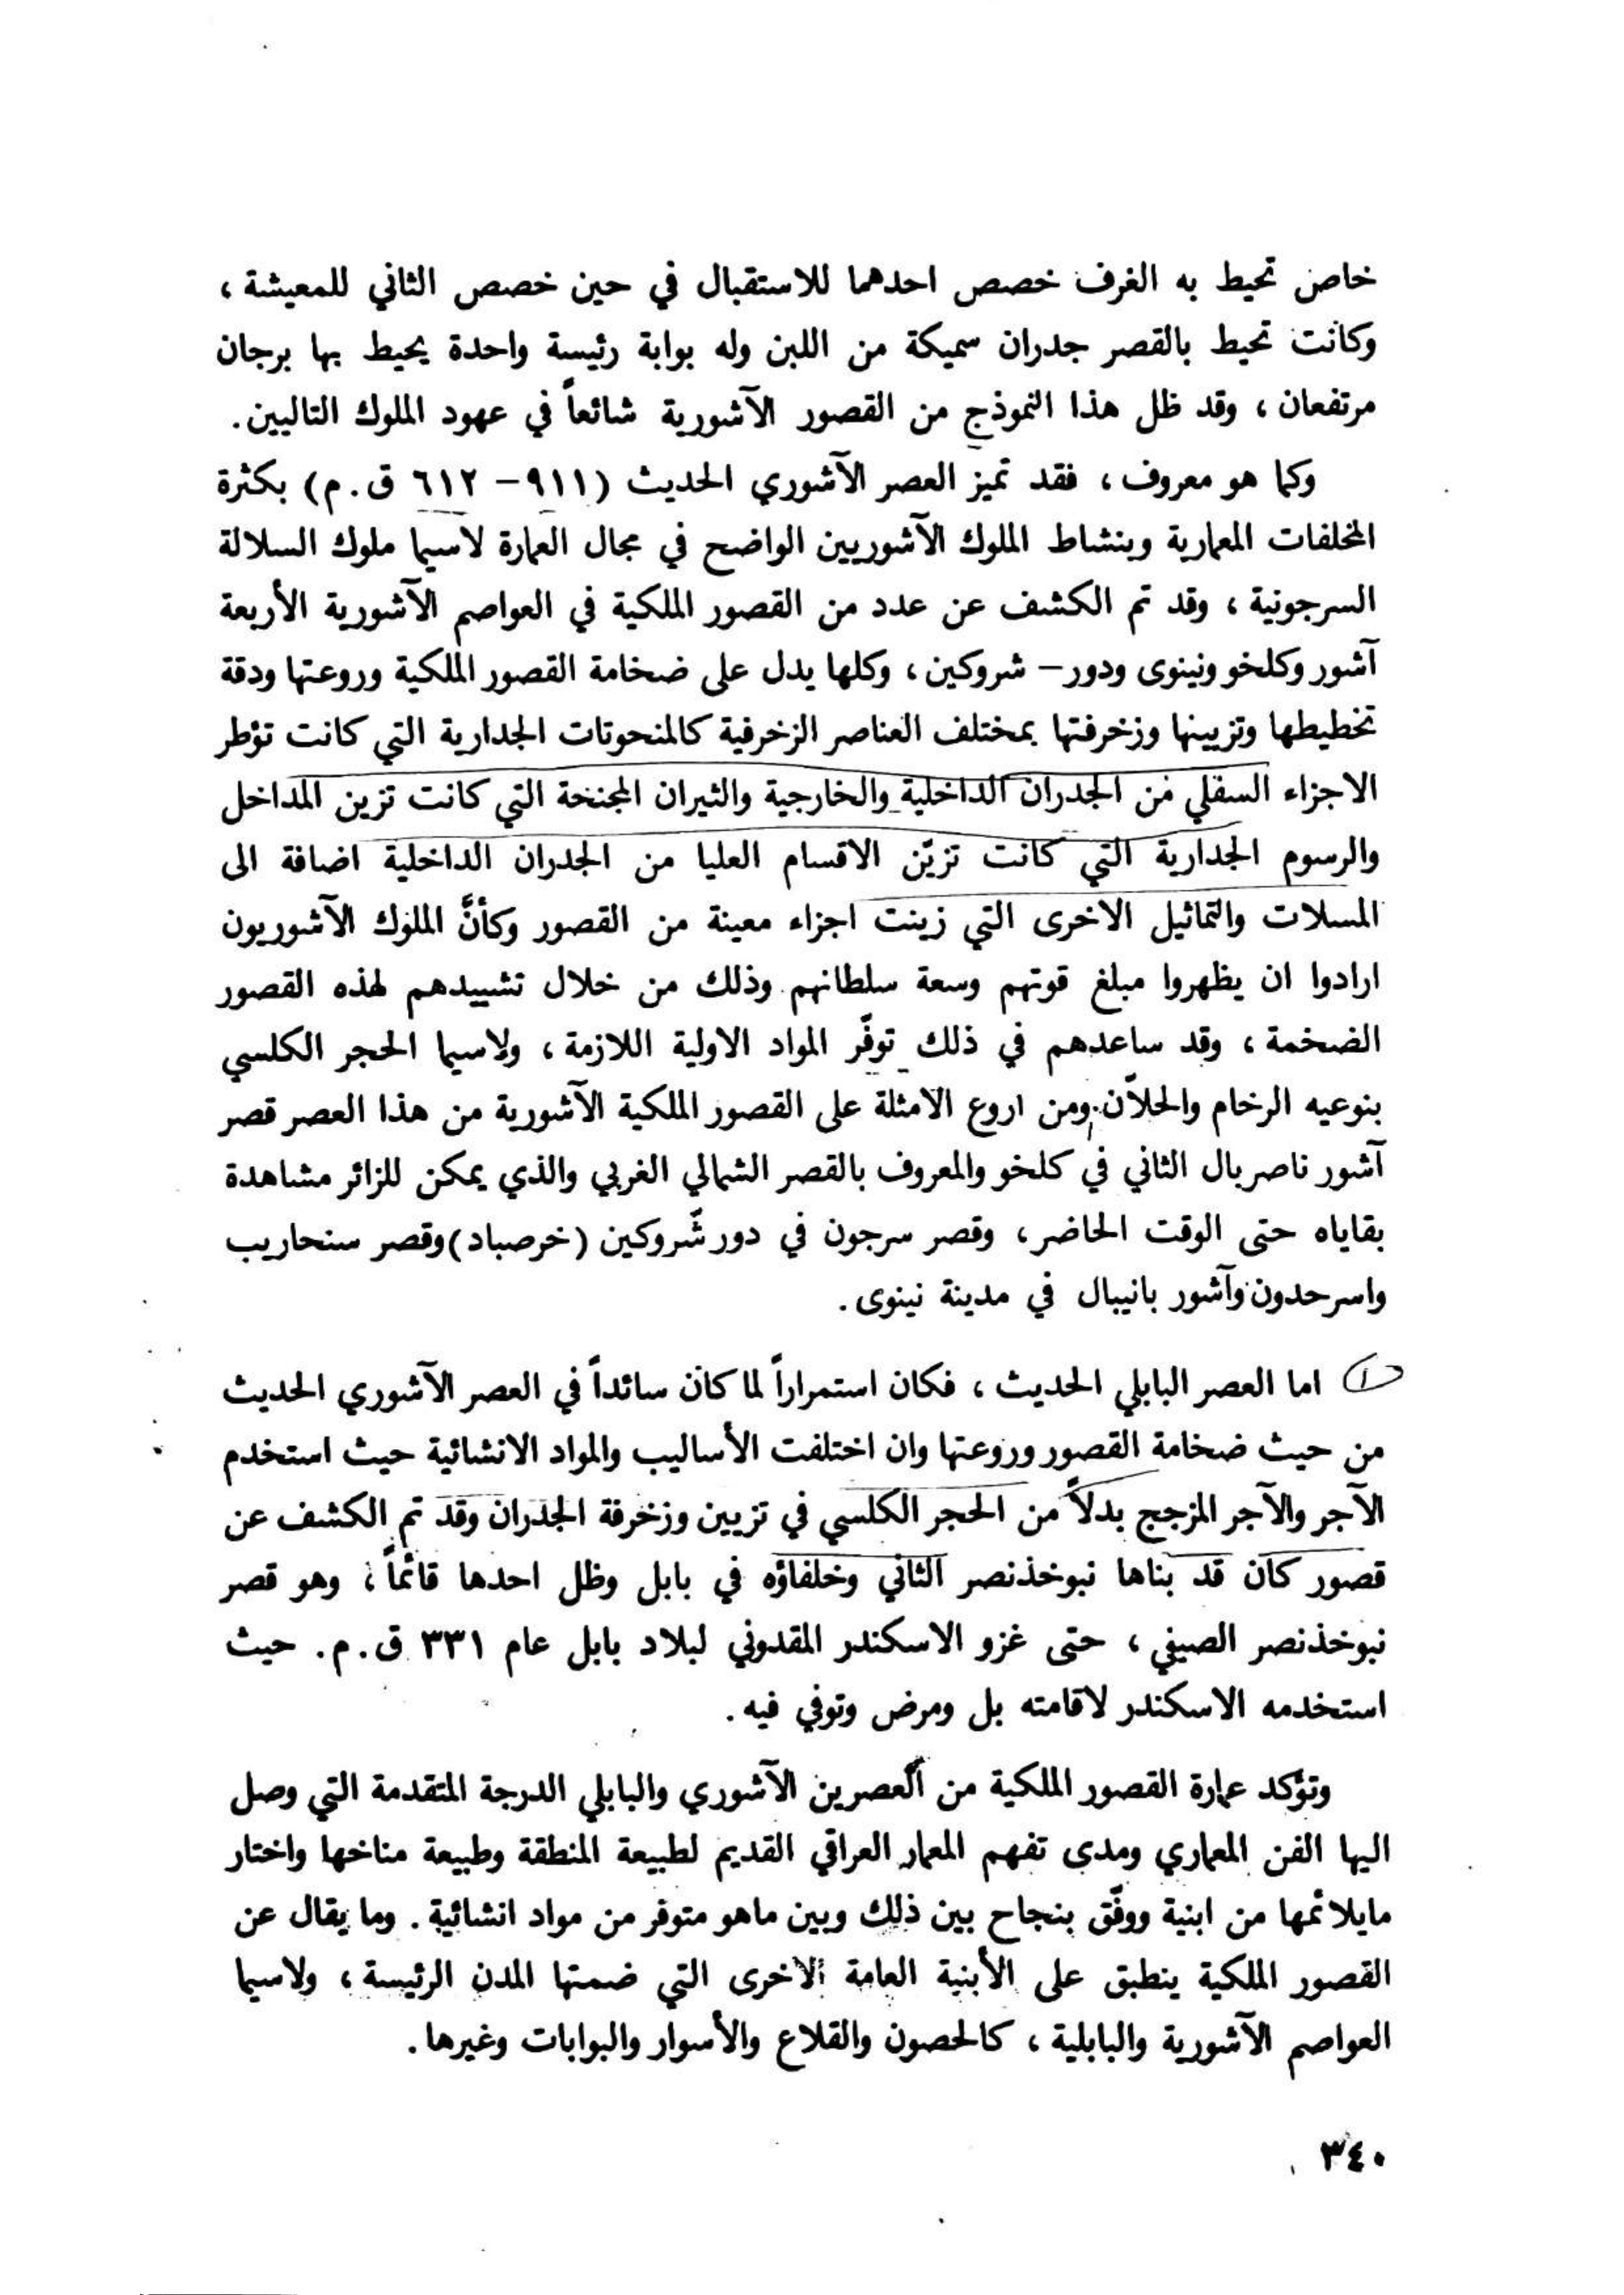 خاص تحيط به الغرف خصص احدهما للاستقبال في حين خصص الثاني للمعيشة ،
وكانت تحيط بالقصر جدران سميكة من اللبن وله بوابة رئيسة واحدة يحيط بها برجان
مرتفعان ، وقد ظل هذا النموذج من القصور الآشورية شائعاً في عهود الملوك التاليين .
وكما هو معروف ، فقد تميز العصر الآشوري الحديث (٩١١ – ٦١٢ ق . م) بكثرة
المخلفات المعمارية وبنشاط الملوك الآشوريين الواضح في مجال العمارة لاسيما ملوك السلالة
السرجونية ، وقد تم الكشف عن عدد من القصور الملكية في العواصم الآشورية الأربعة
آشور وكلخو ونينوى ودور – شروكين ، وكلها يدل على ضخامة القصور الملكية وروعتها ودقة
تخطيطها وتزيينها وزخرفتها بمختلف العناصر الزخرفية كالمنحوتات الجدارية التي كانت تؤطر
الاجزاء السفلي من الجدران الداخلية والخارجية والثيران المجنحة التي كانت تزين المداخل
والرسوم الجدارية التي كانت تزيّن الاقسام العليا من الجدران الداخلية اضافة الى
المسلات والتماثيل الاخرى التي زينت اجزاء معينة من القصور وكأنَّ الملوك الآشوريون
ارادوا ان يظهروا مبلغ قوتهم وسعة سلطانهم وذلك من خلال تشييدهم لهذه القصور
الضخمة ، وقد ساعدهم في ذلك توفّر المواد الاولية اللازمة ، ولاسيما الحجر الكلسي
بنوعيه الرخام والحلاّن . ومن اروع الامثلة على القصور الملكية الآشورية من هذا العصر قصر
آشور ناصر بال الثاني في كلخو والمعروف بالقصر الشمالي الغربي والذي يمكن للزائر مشاهدة
بقاياه حتى الوقت الحاضر ، وقصر سرجون في دور شّروكين (خرصباد) وقصر سنحاريب
واسرحدون وآشور بانيبال في مدينة نينوى .
١ اما العصر البابلي الحديث ، فكان استمراراً لما كان سائداً في العصر الآشوري الحديث
من حيث ضخامة القصور وروعتها وان اختلفت الأساليب والمواد الانشائية حيث استخدم
الآجر والآجر المزجج بدلاً من الحجر الكلسي في تزيين وزخرفة الجدران وقد تم الكشف عن
قصور كان قد بناها نبوخذنصر الثاني وخلفاؤه في بابل وظل احدها قائماً ، وهو قصر
نبوخذنصر الصيفي ، حتى غزو الاسكندر المقدوني لبلاد بابل عام ٣٣١ ق . م . حيث
استخدمه الاسكندر لاقامته بل ومرض وتوفي فيه .
وتؤكد عمارة القصور الملكية من العصرين الآشوري والبابلي الدرجة المتقدمة التي وصل
اليها الفن المعماري ومدى تفهم المعمار العراقي القديم لطبيعة المنطقة وطبيعة مناخها واختار
مايلائمها من ابنية ووفّق بنجاح بين ذلك وبين ماهو متوفر من مواد انشائية . وما يقال عن
القصور الملكية ينطبق على الأبنية العامة الاخرى التي ضمتها المدن الرئيسة ، ولاسيما
العواصم الآشورية والبابلية ، كالحصون والقلاع والأسوار والبوابات وغيرها .
٣٤٠